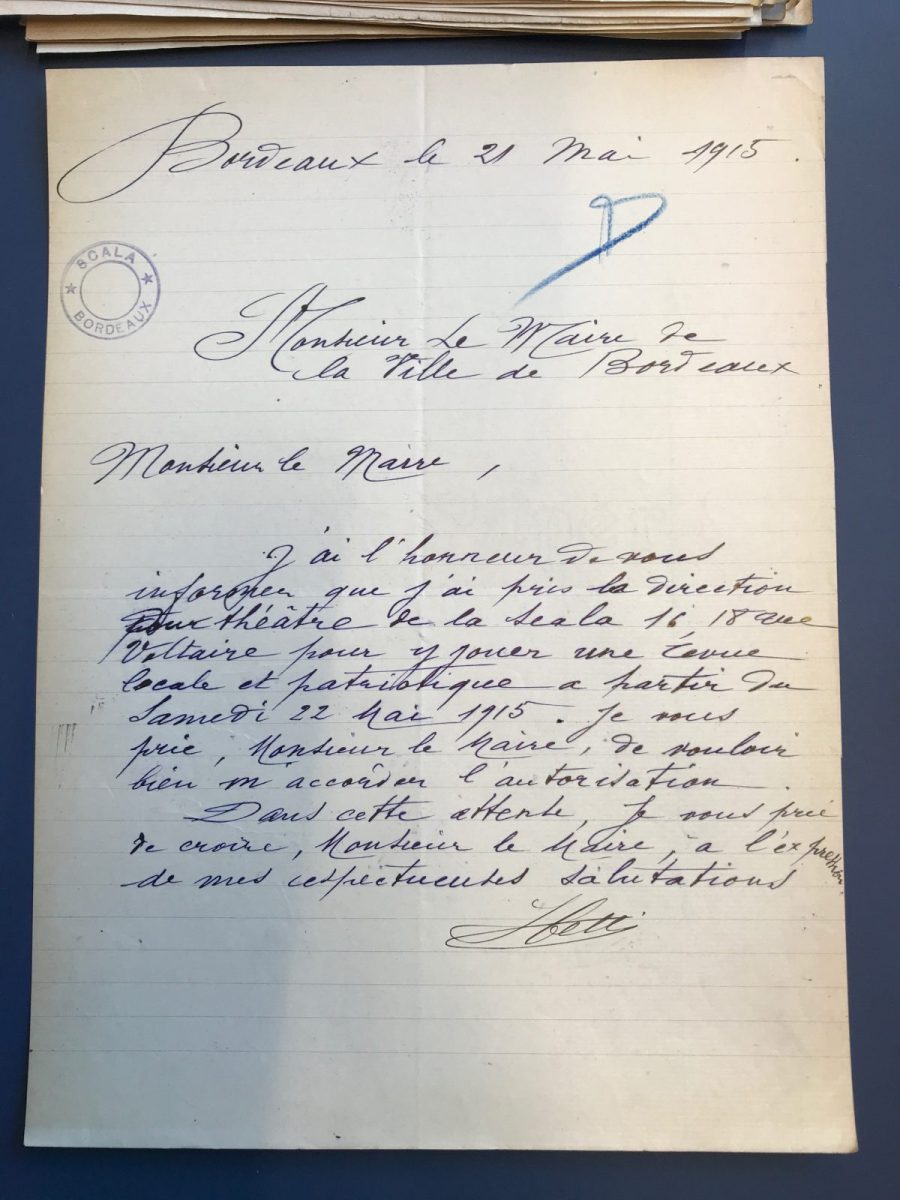 Bordeaux le 21 Mai 1915.
SCALA
BORDEAUX
Monsieur Le Maire de
la Ville de Bordeaux
Monsieur le Maire,
J'ai l'honneur de vous
informer que j'ai pris la direction
théâtre de la Scala 16, 18 rue
Voltaire pour y jouer une revue
locale et patriotique a partir du
Samedi 22 Mai 1915. Je vous
prie, Monsieur le Maire, de vouloir
bien m'accorder l'autorisation.
Dans cette attente, Je vous prie
de croire, Monsieur le Maire, a l'expression
de mes respectueuses salutations